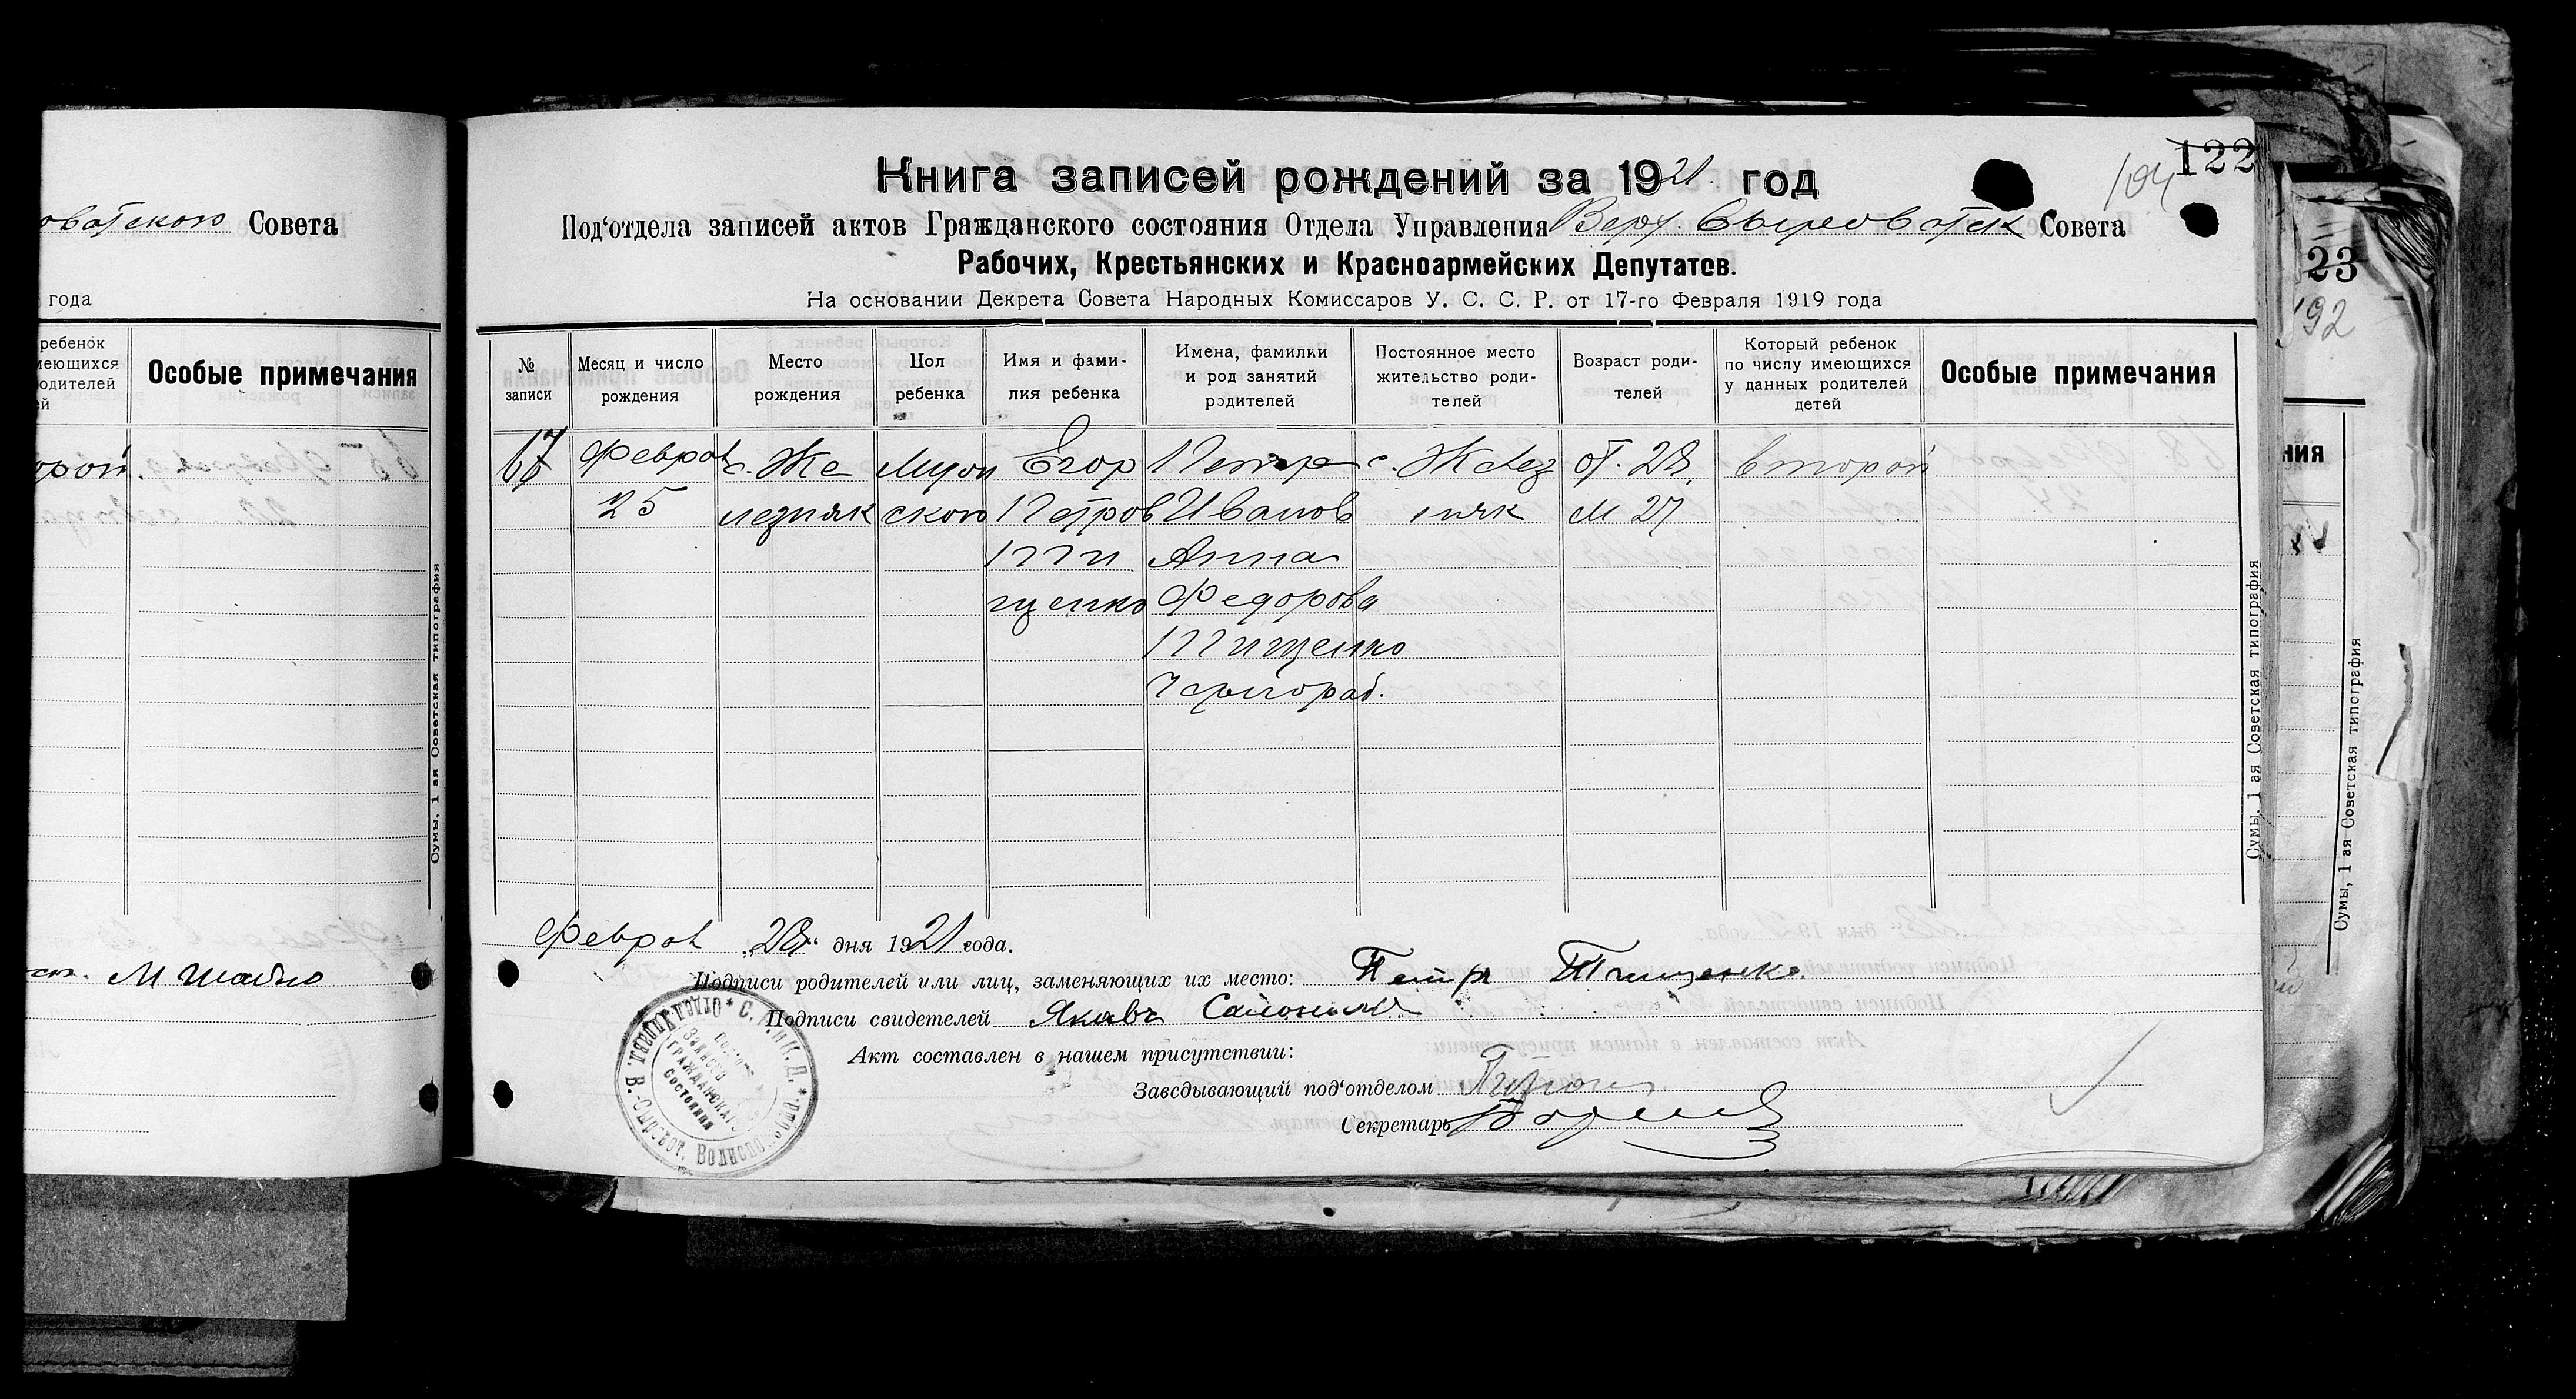 оватского Совета
года
ребенок
имеющихся
родителей
ей
Особые примечания
орой
М Шабло
Сумы, 1 ая Советская типография
122
104
Книга записей рождений за 1921. год
Под‘отдела записей актов Гражданского состояния Отдела Управления Верх. Сыроватск Совета
Рабочих, Крестьянских и Красноармейских Депутатов.
На основании Декрета Совета Народных Комиссаров У. С. С. Р. от 17-го Февраля 1919 года
№ записи
Месяц и число рождения
Место рождения
Пол ребенка
Имя и фами-
лия ребенка
Имена, фамилии
и род занятий
родителей
Постоянное место
жительство роди-
телей
Возраст роди-
телей
Который ребенок
по числу имеющихся
у данных родителей
детей
Особые примечания
67
Феврал
25
с. Же
лезняк
Мужи
ского
Егор
Петров
Ти
щенко
Петр
Иванов
Анна
Федорова
Тищенко
Чернораб.
с. Желез
няк
от. 28.
М 27
второй
Феврал „28“ дня 1921 года.
Подписи родителей или лиц, заменяющих их место: Петр Тищенко.
Подписи свидетелей Яковъ
Акт составлен в нашем присутствии:
Заведывающий под‘отделом
Секретарь
Записи
Гражданскаго
Состояния
Сумы, 1 ая Советская типография
23
192
ния
Сумы, 1 ая Советская типография